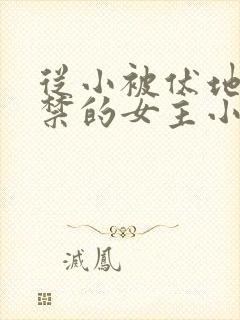 從小被伏地
禁的女主小
滅鳳